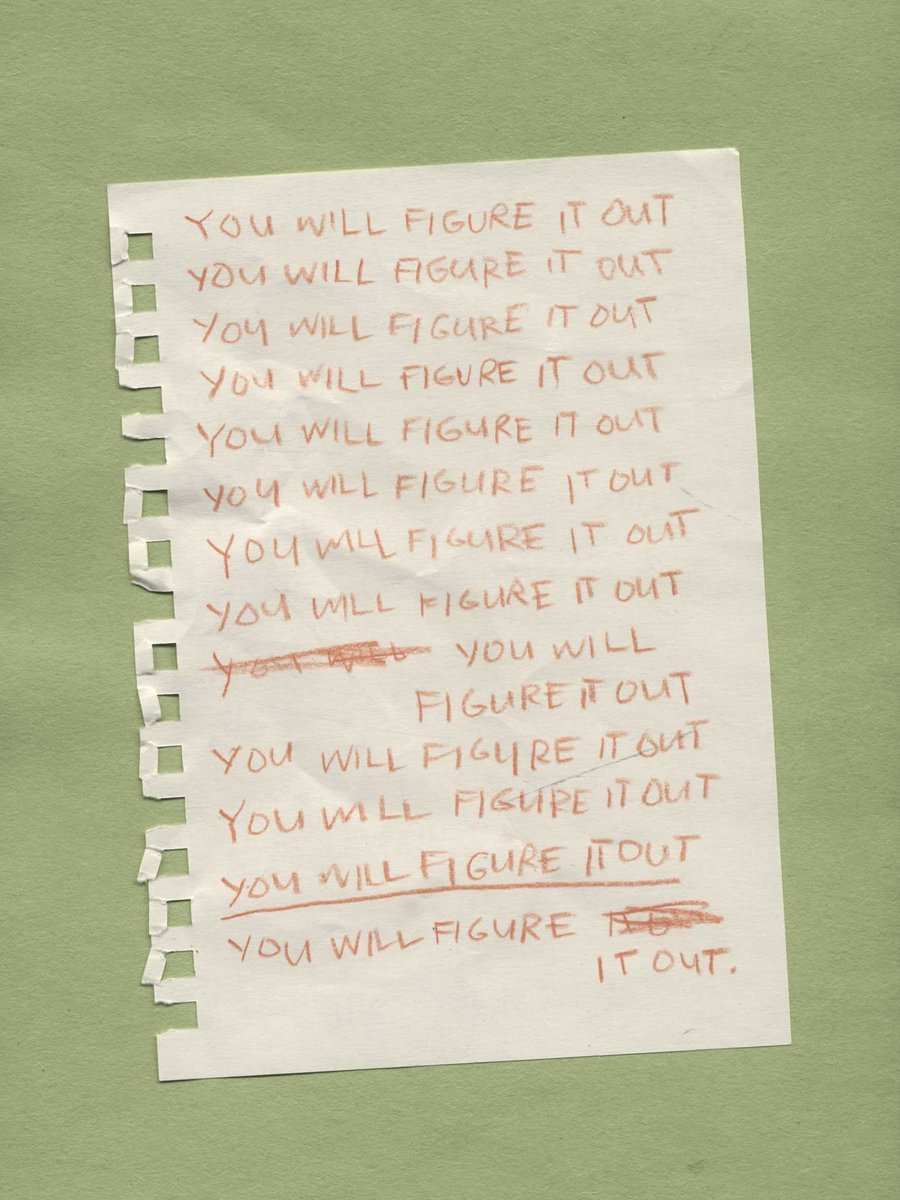 YOU WILL FIGURE IT OUT
YOU WILL FIGURE IT OUT
YOU WILL FIGURE IT OUT
YOU WILL FIGURE IT OUT
YOU WILL FIGURE IT OUT
YOU WILL FIGURE IT OUT
YOU WILL FIGURE IT OUT
YOU WILL FIGURE IT OUT
YOU WILL YOU WILL
FIGURE IT OUT
YOU WILL FIGURE IT OUT
YOU WILL FIGURE IT OUT
YOU WILL FIGURE IT OUT
YOU WILL FIGURE
IT OUT.